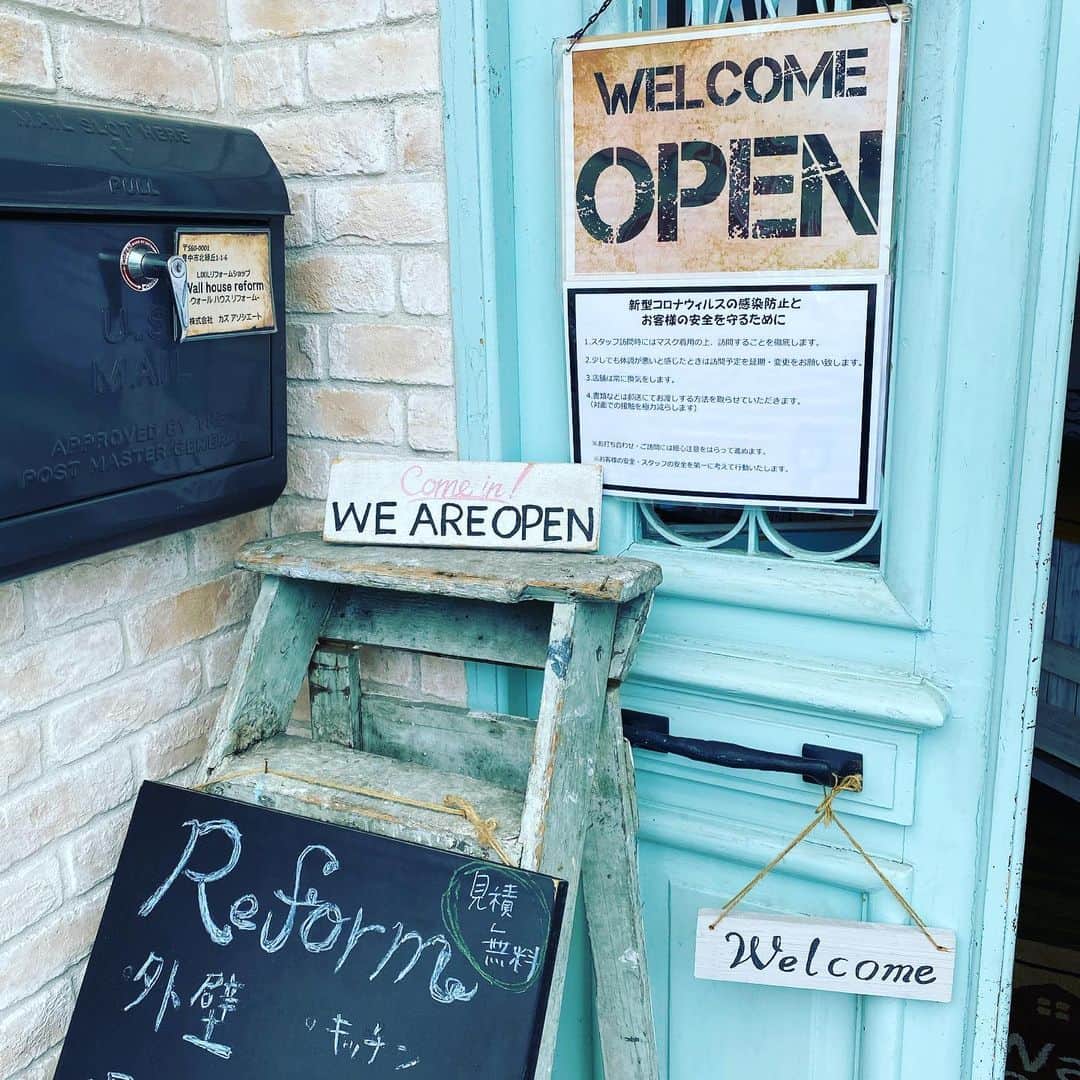 MAIL SLOT HERE
PULL
U.S
MAIL
APPROVED BY THE
POST MASTER GENERAL
〒560-0001
豊中市北緑丘1-1-6
LIXILリフォームショップ
Wall house reform
-ウォール ハウス リフォーム-
株式会社 カズ アソシエート
WELCOME
OPEN
新型コロナウィルスの感染防止と
お客様の安全を守るために
1.スタッフ訪問時にはマスク着用の上、訪問することを徹底します。
2.少しでも体調が悪いと感じたときは訪問予定を延期・変更をお願い致します。
3.店舗は常に換気をします。
4.書類などは郵送にてお渡しする方法を取らせていただきます。
(対面での接触を極力減らします)
※お打ち合わせ・ご訪問には細心注意をはらって進めます。
※お客様の安全・スタッフの安全を第一に考えて行動いたします。
Come in!
WE ARE OPEN
Welcome
Reform
見積
無料
・外壁
・キッチン